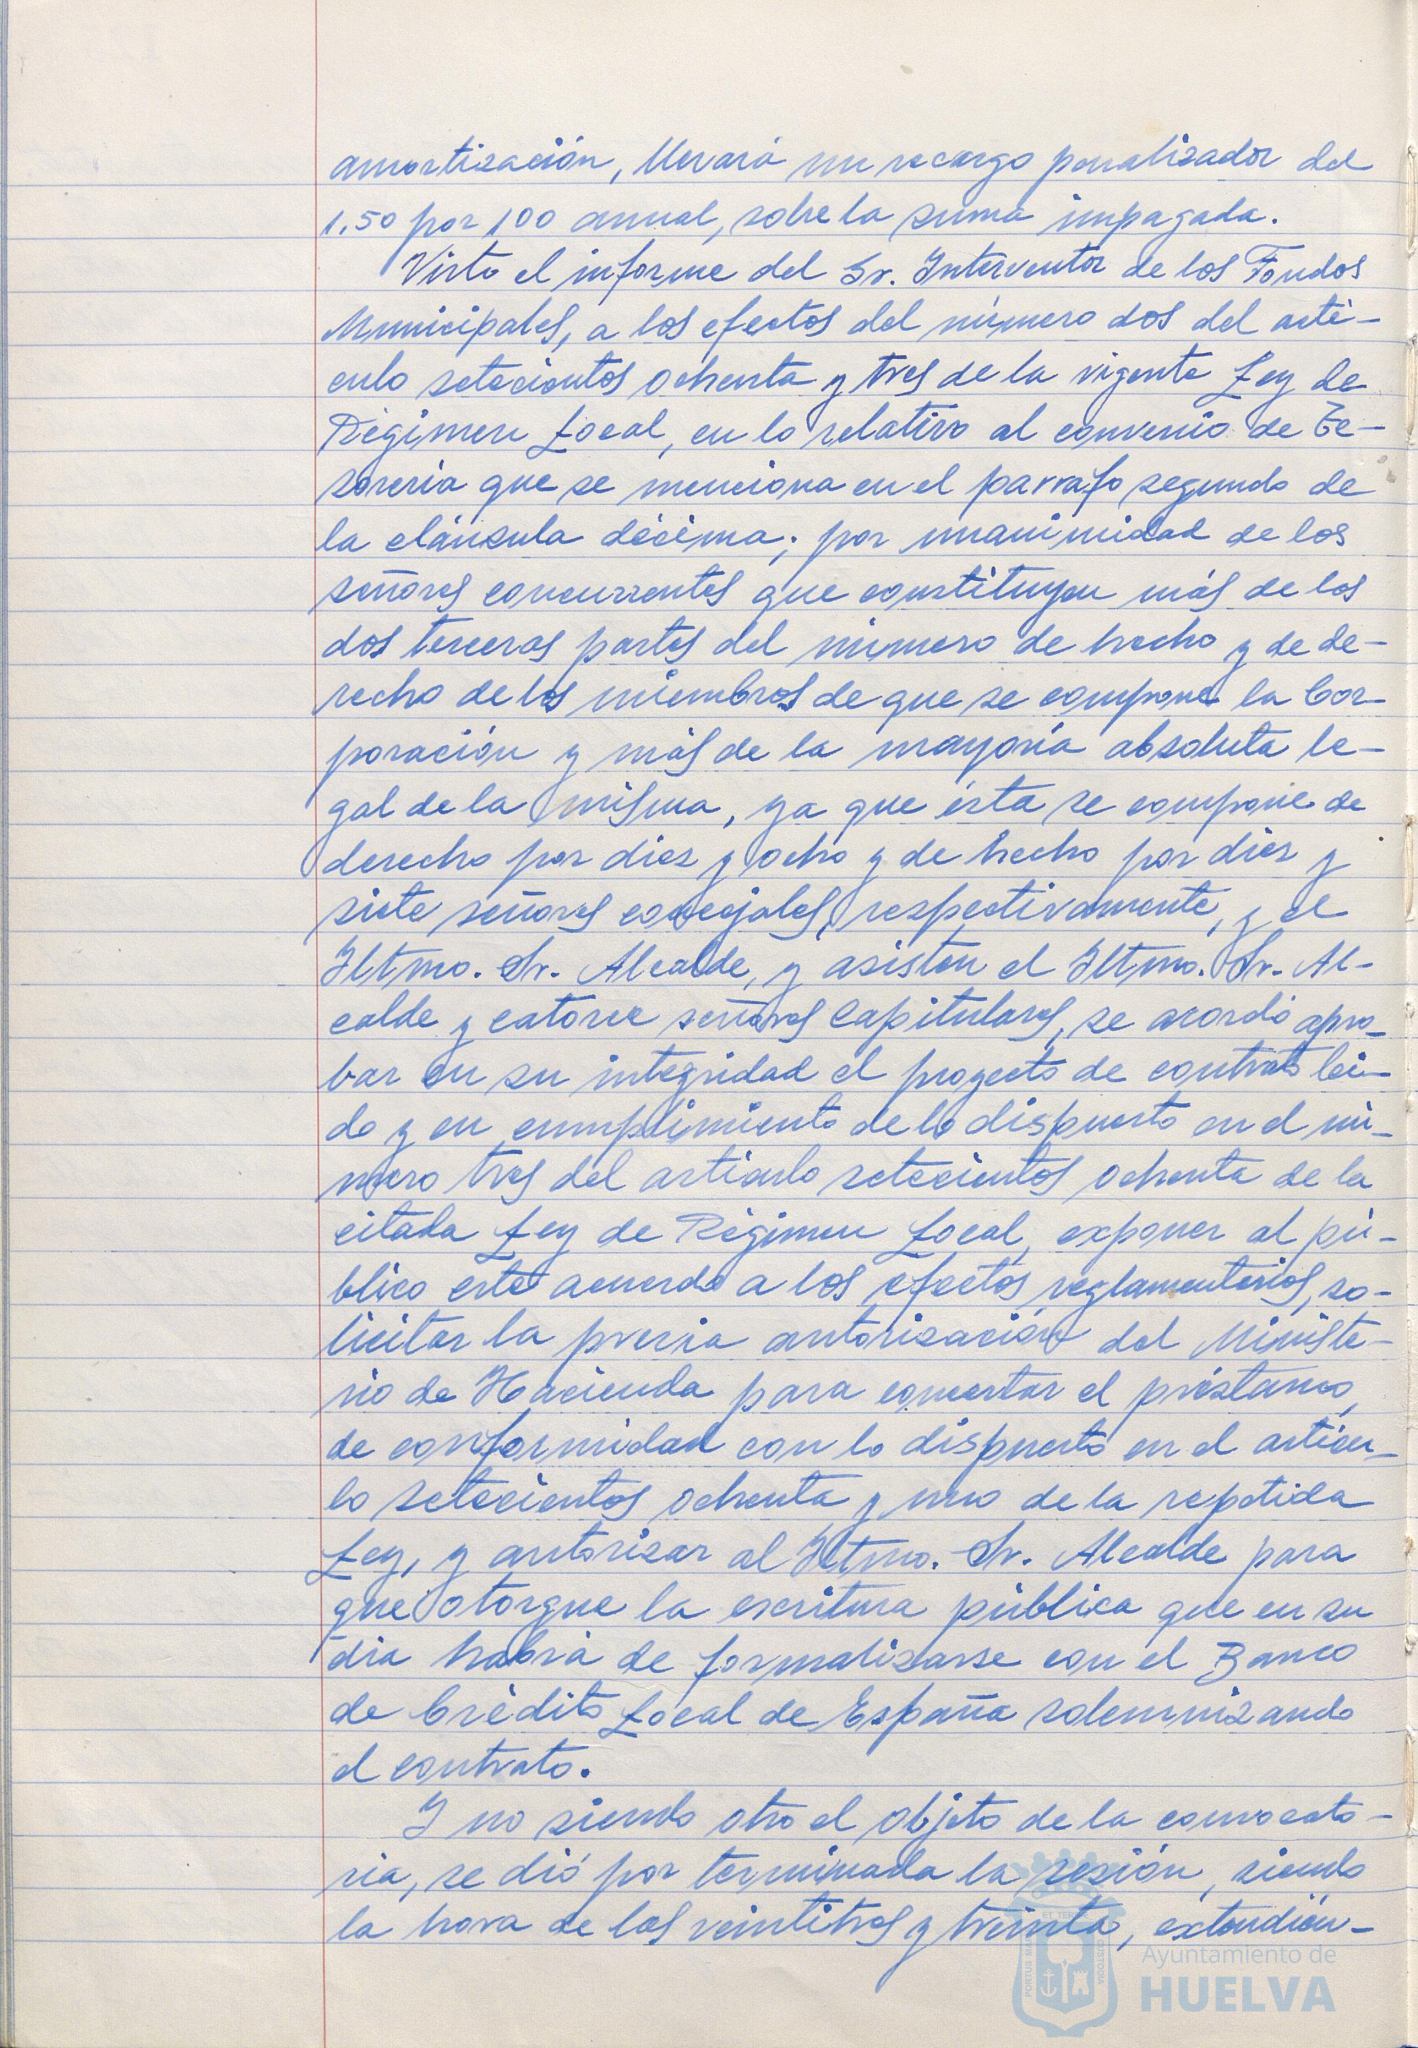 amortización, llevará un recargo penalizador del
1.50 por 100 anual, sobre la suma impagada.
Visto el informe del Sr. Interventor de los Fondos
Municipales, a los efectos del número dos del artí-
culo setecientos ochenta y tres de la vigente Ley de
Régimen Local, en lo relativo al convenio de Te-
sorería que se menciona en el parrafo segundo de
la cláusula décima; por unanimidad de los
señores concurrentes que constituyen más de las
dos terceras partes del número de hecho y de de-
recho de los miembros de que se compone la Cor-
poración y más de la mayoría absoluta le-
gal de la misma, ya que ésta se compone de
derecho por diez y ocho y de hecho por diez y
siete señores concejales, respectivamente, y el
Iltmo. Sr. Alcalde, y asisten el Iltmo. Sr. Al-
calde y catorce señores Capitulares, se acordó apro-
bar en su integridad el proyecto de contrato leí-
do y en cumplimiento de lo dispuesto en el nú-
mero tres del artículo setecientos ochenta de la
citada Ley de Régimen Local, exponer al pú-
blico este acuerdo a los efectos reglamentarios, so-
licitar la previa autorización del Ministe-
rio de Hacienda para concertar el préstamo,
de conformidad con lo dispuesto en el artícu-
lo setecientos ochenta y uno de la repetida
Ley, y autorizar al Iltmo. Sr. Alcalde para
que otorgue la escritura pública que en su
día habrá de formalizarse con el Banco
de Crédito Local de España solemnizando
el contrato.
Y no siendo otro el objeto de la convocato-
ria, se dió por terminada la sesión, siendo
la hora de las veintitres y treinta, extendién-
Ayuntamiento de
HUELVA